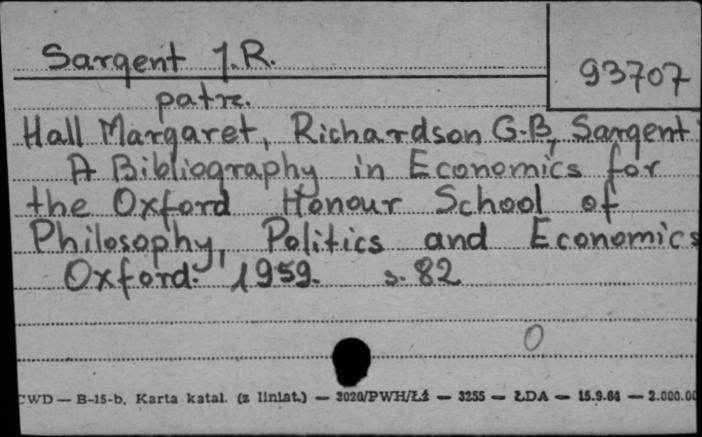 Sargent J.R.
93707
patrz.
Hall Margaret, Richardson G.B, Sargent
A Bibliography in Economics for
the Oxford Honour School of
Philosophy, Politics and Economics
Oxford. 1959. s. 82
0
CWD — B-15-b. Karta katal. (z liniat.) — 3020/PWH/Łź — 3255 — ŁDA — 15.9.64 — 2.000.00